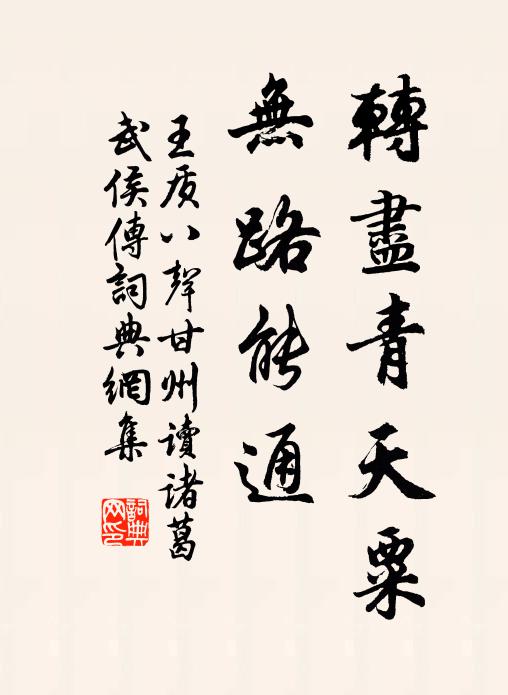 轉盡青天粟
無路能通
王质八聲甘州讀諸葛
武侯傳詞典網集
詞典
网印